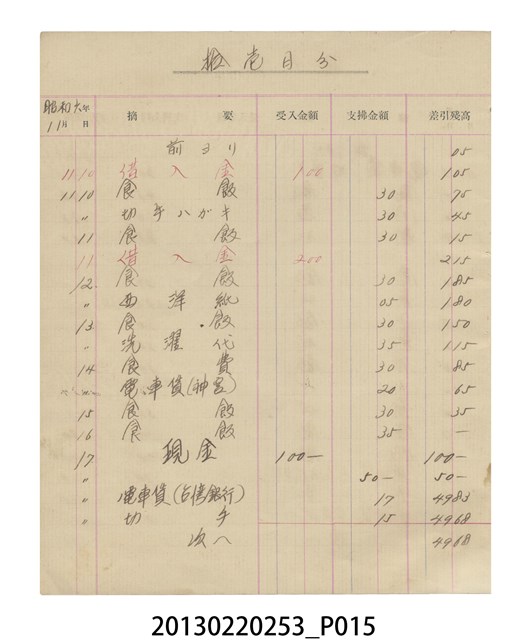 拾壱月分
昭和六年
11月 日 摘 要 受入金額 支拂金額 差引残高
前ヨリ 05
11 10 借入金 100 105
11 10 食飯 30 75
〃 切手ハガキ 30 45
11 食飯 30 15
11 借入金 200 215
12 食飯 30 185
〃 西洋紙 05 180
13 食飯 30 150
〃 洗濯代 35 115
14 食費 30 85
電車賃(神宮) 20 65
15 食飯 30 35
16 食飯 35 —
17 現金 100— 100—
〃 50— 50—
〃 電車賃(台湾銀行) 17 4983
〃 切手 15 4968
次へ 4968
20130220253_P015